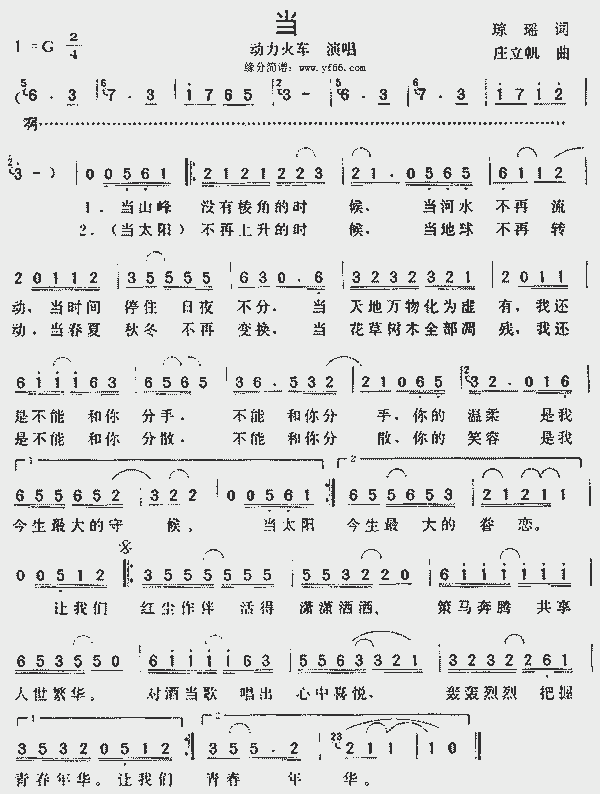 当
1=G 2/4
琼瑶 词
动力火车 演唱
庄立帆 曲
缘分简谱: www.yf66.com
(6·3 | 7·3 | 1765 | 3- | 6·3 | 7·3 | 1712 |
啊
3-) | 00561 |: 2121223 | 21·0565 | 6112 |
1.当山峰 没有棱角的时 候、 当河水 不再 流
2.(当太阳)不再上升的时 候、 当地球 不再 转
20112 | 35555 | 630·6 | 3232321 | 2011 |
动,当时间 停住 日夜 不分, 当 天地万物化为虚 有,我还
动,当春夏 秋冬 不再 变换, 当 花草树木全部凋 残,我还
611163 | 6565 | 36·532 | 21065 | 32·016 |
是不能 和你 分手, 不能 和你分 手,你的 温柔 是我
是不能 和你 分散, 不能 和你分 散,你的 笑容 是我
1 2
655652 | 322 | 00561 :| 655653 | 21211 |
今生最大的守 候、 当太阳 今生最 大的 眷 恋。
00512 |: 3555555 | 553220 | 6111111 |
让我们 红尘作伴 活得 潇潇洒洒、 策马奔腾 共享
653550 | 6111163 | 5563321 | 3232261 |
人世繁华。 对酒当歌 唱出 心中喜悦、 轰轰烈烈 把握
1 2
35320512 :| 355·2 | 23 211 | 10 ||
青春年华。让我们 青春 年 华。